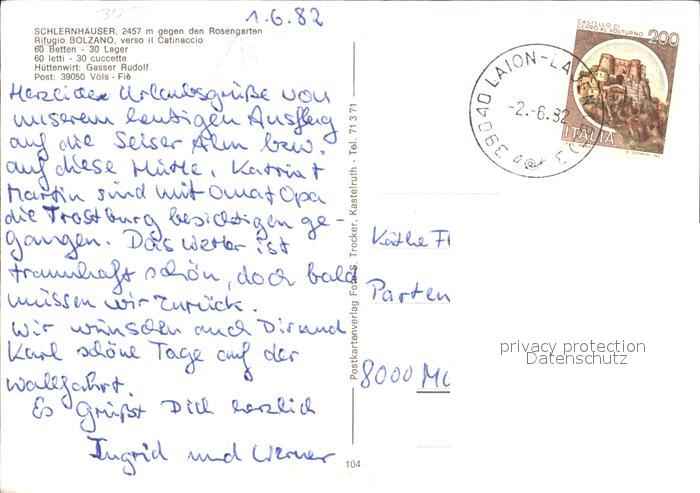 1.6.82
SCHLERNHÄUSER, 2457 m gegen den Rosengarten
Rifugio BOLZANO, verso il Catinaccio
60 Betten - 30 Lager
60 letti - 30 cuccette
Hüttenwirt: Gasser Rudolf
Post: 39050 Völs - Fiè
Herzliche Urlaubsgrüße von
unserem heutigen Ausflug
auf die Seiser Alm bzw.
auf diese Hütte. Katrin +
Martin sind mit Oma+Opa
die Trostburg besichtigen ge-
gangen. Das Wetter ist
traumhaft schön, doch bald
müssen wir zurück.
Wir wünschen auch Dir und
Karl schöne Tage auf der
Wallfahrt.
Es grüßt Dich herzlich
Ingrid und Werner
Postkartenverlag Foto S. Trocker, Kastelruth - Tel. 71371
104
CASTELLO DI
CERRO AL VOLTURNO
200
ITALIA
39040 LAION-LA
-2.-6.82
Käthe F
Parten
8000 Mü
privacy protection
Datenschutz